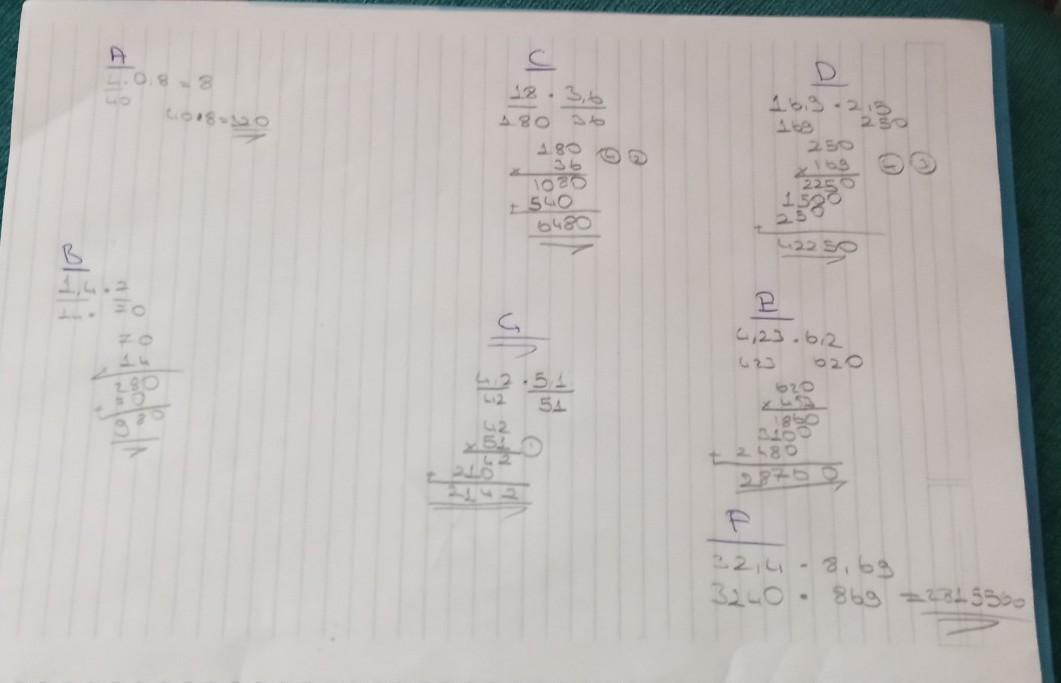 A
4.0,8 = 8
40
40.8=320
B
1,4.7
14. 70
70
14
280
+ 70
980
C
18 . 3,6
180 36
180
x 36
1080
+ 540
6480
Ç
4,2 . 5,1
42 51
42
x 51
42
+ 210
2142
D
16,9 . 2,5
169 250
250
x 169
2250
1500
+ 250
42250
E
4,23 . 6,2
423 620
620
x 423
1860
+ 2480
F
32,4 . 8,69
3240 . 869 = 2815560